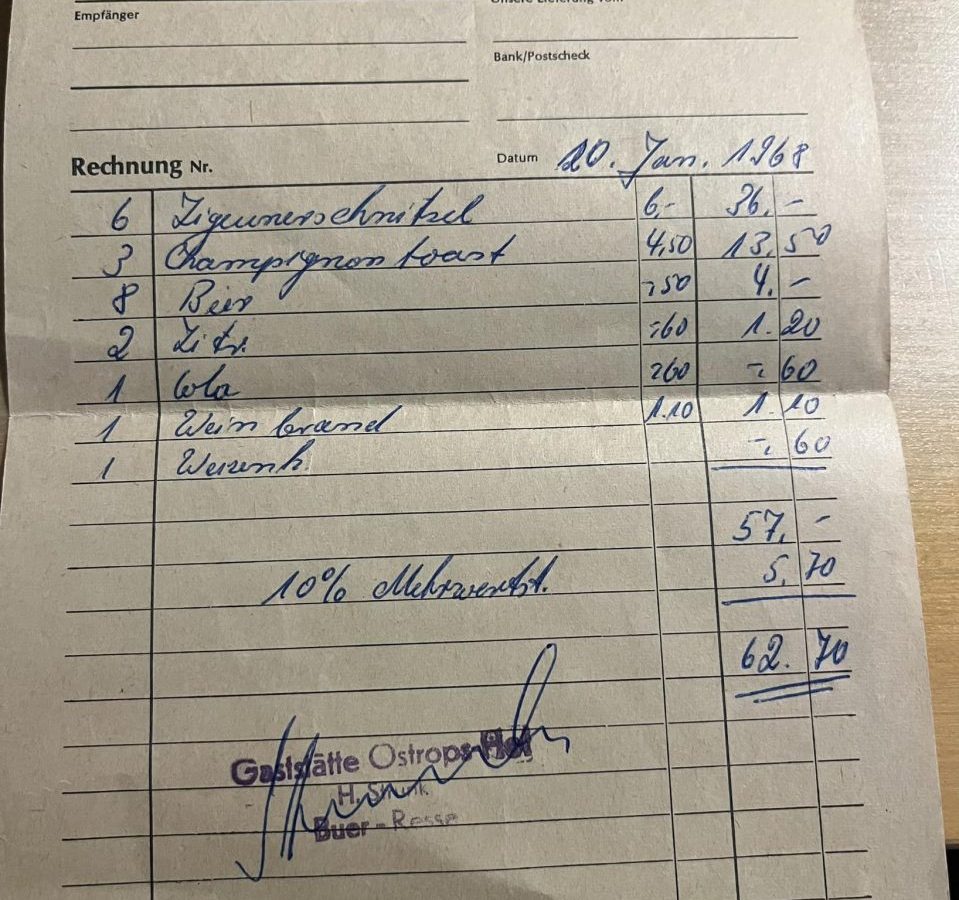 Empfänger
Bank/Postscheck
Rechnung Nr. Datum 20. Jan. 1968
6 Zigeunerschnitzel 6,- 36,-
3 Champignontoast 4,50 13,50
8 Bier -,50 4,-
2 Zitr. -,60 1.20
1 Cola -,60 -,60
1 Weinbrand 1.10 1.10
1 -,60
57,-
10% Mehrwertst. 5,70
62.70
Gaststätte Ostrops Hof
H.
Buer - Resse